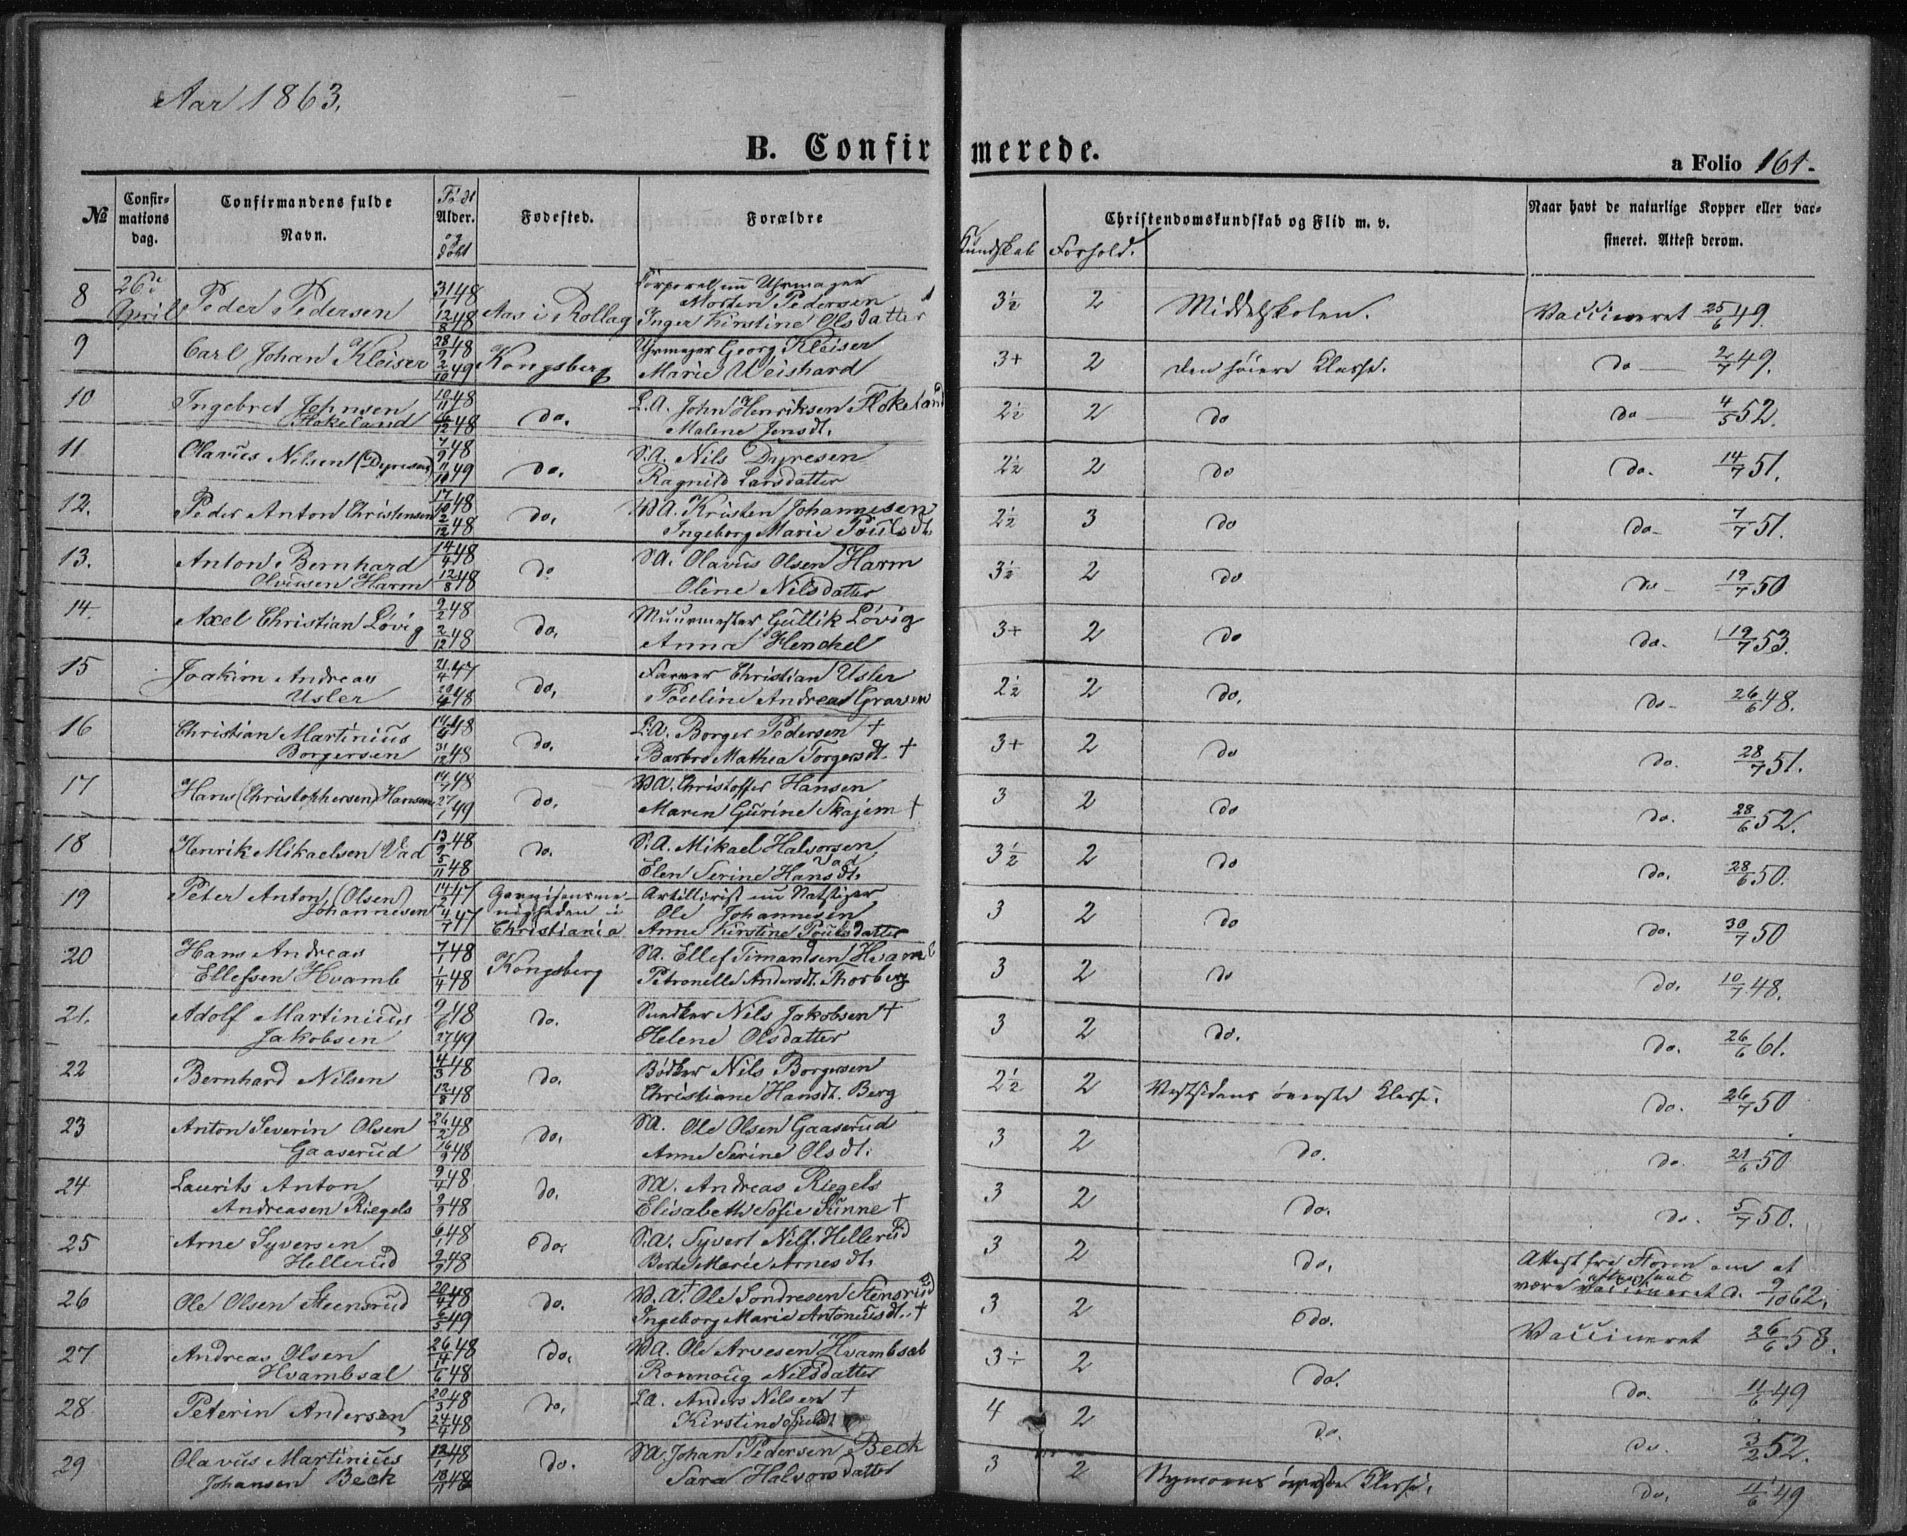 Aar 1863.
B. Confirmerede.
a Folio 161.
No
Confirmations dag.
Confirmandens fulde Navn.
Født Alder. og Døbt
Fødested.
Forældre
Kundskab
Forhold.
Christendomskundskab og Flid m. v.
Naar havt de naturlige Kopper eller vaccineret. Attest derom.
8 26de April Peder Pedersen 31/1 48 12/8 48 Aas i Rollag Corporal, nu Uhrmager Morten Pedersen Inger Kirstine Olsdatter 3½ 2 Middelskolen. Vaccineret 25/6 49.
9 Carl Johan Kleiser 28/9 48 2/10 49 Kongsberg Uhrmager Georg Kleiser Marie Weishard 3+ 2 den høiere Classe. do 2/7 49.
10 Ingebret Johnsen Flokeland 10/11 48 16/12 48 do. L.A. John Henriksen Flokeland Malene Jensdt. 2½ 2 do do 4/5 52.
11. Olavus Nilsen (Dyresen) 7/9 48 11/10 49 do. S.A. Nils Dyresen Ragnild Larsdatter 2½ 2 do do. 14/7 51.
12. Peder Anton Christensen 17/10 48 2/12 48 do. VA. Kristen Johannesen Ingeborg Marie Poulsdt. 2½ 3 do do 7/7 51.
13. Anton Bernhard Olvusen Harm 14/4 48 12/8 48 do SA. Olavus Olsen Harm Oline Nilsdatter 3½ 2 do do 19/7 50
14. Axel Christian Lövig 9/2 48 2/12 48 do. Muurmester Gullik Lövig Anna Henchel 3+ 2 do do. 19/7 53.
15 Joakim Andreas Usler 21/4 47 48 do. Farver Christian Usler Pouline Andrea Graven 2½ 2 do. do 26/6 48.
16 Christian Martinius Borgersen 48 31/12 48 do. L.A. Borger Pedersen † Barbro Mathea Torgersdt. † 3+ 2 do do. 28/7 51.
17 Hans (Christophersen) Hansen 14/7 48 27/1 49 do. VA. Christoffer Hansen Maren Gurine Skajem † 3 2 do do. 28/6 52.
18 Henrik Mikaelsen Vad 13/9 48 5/11 48 do. S.A. Mikael Halvorsen Vad Elen Serine Hansdt. 3½ 2 do do. 28/6 50.
19 Peter Anton (Olsen) Johannesen 14/2 47 4/7 47 Garnisonsmenigheden i Christiania Artillerist nu Natstiger Ole Johannesen Anne Kirstine Poulsdatter 3 2 do do. 30/7 50
20 Hans Andreas Ellefsen Hvamb 7/1 48 1/4 48 Kongsberg SA. Ellef Timandsen Hvamb Petronelle Andersdt. Thorberg 3 2 do do. 10/7 48.
21. Adolf Martinius Jakobsen 9/6 48 49 do. Snedker Nils Jakobsen † Helene Olsdatter 3 2 do. do. 26/6 61.
22 Bernhard Nilsen 4/3 48 12/8 48 do. Bödker Nils Borgersen Christiane Hansdt. Berg 2½ 2 Vestsidens øverste Classe. do. 26/7 50
23 Anton Severin Olsen Gaaserud 26/2 48 16/9 48 do. SA. Ole Olsen Gaaserud Anne Serine Olsdt. 3 2 do. do. 21/6 50
24 Laurits Anton Andreasen Riegels 9/4 48 9/9 48 do. SA. Andreas Riegels Elisabeth Sofie Sünne † 3 2 do. do. 5/7 50.
25 Arne Syversen Hellerud 6/1 48 9/9 48 do. S.A. Syvert Nils. Hellerud Berte Marie Arnesdt. 3 2 do. Attest fra om at være vaccineret d. 9/10 62.
26 Ole Olsen Steensrud 48 6/5 49 do. V.A. † Ole Sondresen Stensrud Ingeborg Marie Antoniusdt. † 3 2 do. Vaccineret 26/6 58.
27 Andreas Olsen Hvambsal 26/4 48 14/6 48 do. VA. Ole Arvesen Hvambsal Ronnoug Nilsdatter 3÷ 2 do. do. 11/6 49
28 Peterin Andersen 20/3 48 24/4 48 do. LA. Anders Nilsen † Kirstine 4 2 do. do. 3/2 52.
29 Olavus Martinius Johansen Beck 12/1 48 18/11 48 do. SA. Johan Pedersen Beck Sara Halvorsdatter 3 2 Nymoens øverste Classe. do. 11/6 49